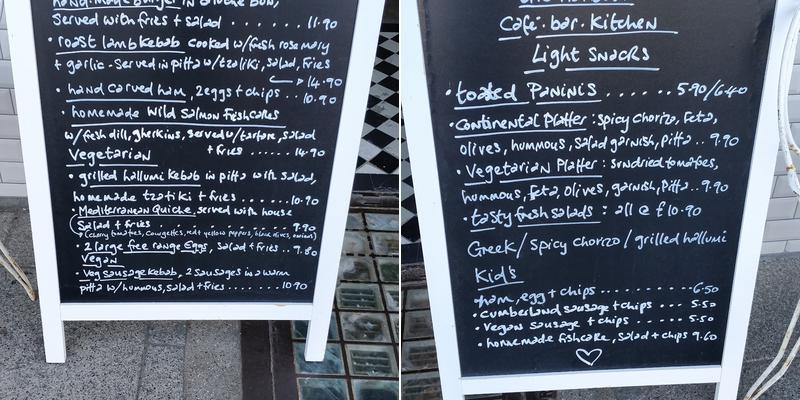 hand-made burger in brioche bun,
Served with fries + salad ........ 11.90
• roast lamb kebab cooked w/fresh rosemary
+ garlic - served in pitta w/tzatiki, salad, fries
→ 14.90
• hand carved ham, 2 eggs + chips .. 10.90
• homemade wild salmon fishcakes
w/fresh dill, gherkins, served w/tartare, salad
+ fries ...... 14.90
Vegetarian
• grilled hallumi kebab in pitta with salad,
homemade tzatiki + fries ........ 10.90
• Mediterranean Quiche, served with house
salad + fries ........ 9.90
(cherry tomatoes, courgettes, red + yellow peppers, black olives, onions)
• 2 large free range Eggs, Salad + fries .. 9.80
Vegan
• Veg sausage kebab, 2 sausages in a warm
pitta w/hummous, salad + fries ........ 10.90
Cafe. bar. Kitchen
Light Snacks
• toasted Paninis ...... 5.90/6.40
• Continental Platter : Spicy chorizo, feta,
olives, hummous, salad garnish, pitta .. 9.90
• Vegetarian Platter : sundried tomatoes,
hummous, feta, olives, garnish, pitta .. 9.90
• tasty fresh salads : all @ £10.90
Greek / Spicy Chorizo / grilled hallumi
Kid's
• ham, egg + chips .......... 6.50
• cumberland sausage + chips ... 5.50
• vegan sausage + chips ...... 5.50
• homemade fishcake, salad + chips 9.60